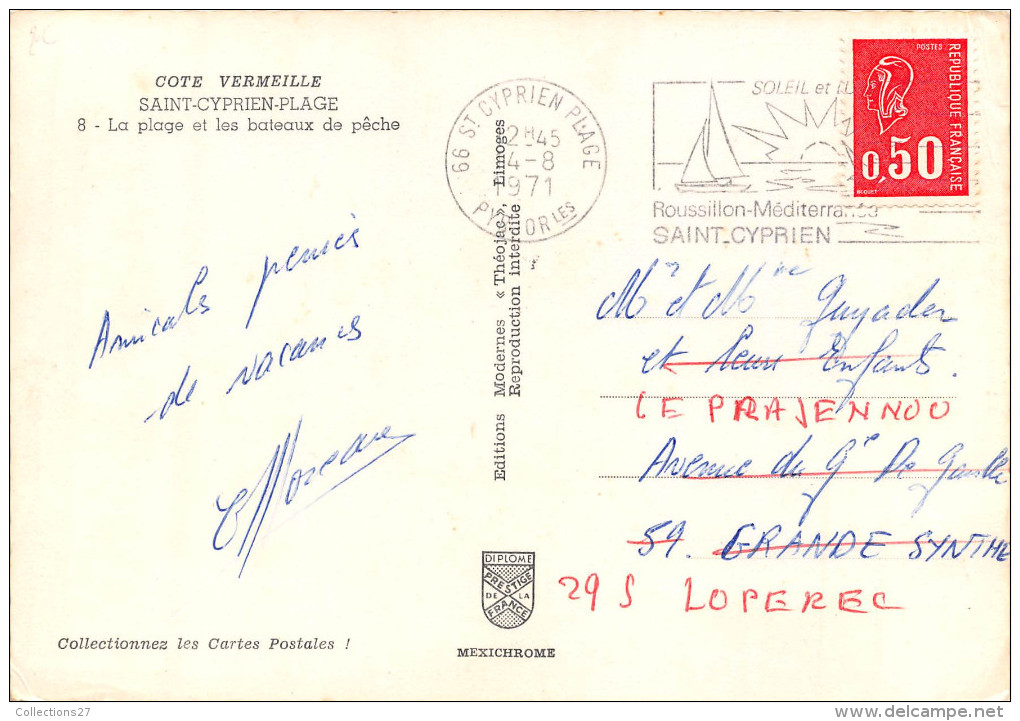 COTE VERMEILLE
SAINT-CYPRIEN-PLAGE
8 - La plage et les bateaux de pêche
Amicales pensées
de vacances
Moreau
Collectionnez les Cartes Postales !
Editions Modernes « Théojac », Limoges
Reproduction interdite
DIPLOME
PRESTIGE
DE LA
FRANCE
MEXICHROME
66 ST CYPRIEN PLAGE
12H45
4-8
1971
PYR. ORLES
SOLEIL et
Roussillon-Méditerranée
SAINT-CYPRIEN
POSTES
REPUBLIQUE FRANÇAISE
0,50
BEQUET
Mr et Mme Guyader
et leurs Enfants.
LE PRAJENNOU
Avenue du Gle De Gaulle
59. GRANDE SYNTHE
29 S LOPEREC
Collections27
delcampe.net